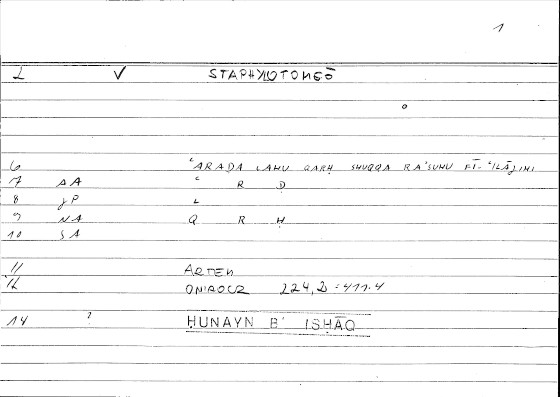 1
L V STAPHYLOTOMEŌ
6 ʿARADA LAHU QARḤ SHUQQA RA'SUHU FĪ-ʿILĀJIHI
7 AA ʿ R Ḍ
8 JP L
9 NA Q R Ḥ
10 SA
11 ARTEM
12 ONIROCR 224,2 = 411.4
14 ? HUNAYN B' ISḤĀQ